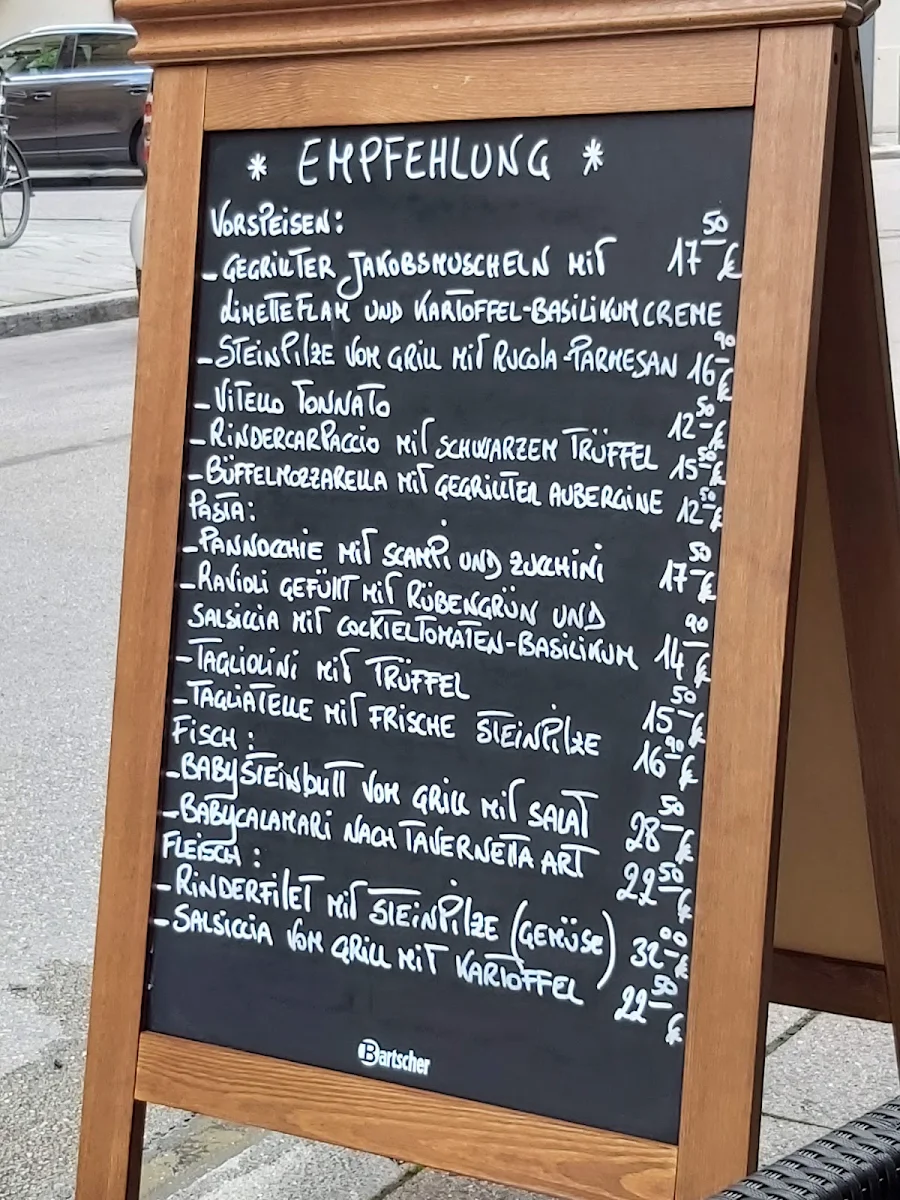 * EMPFEHLUNG *
VORSPEISEN:
- GEGRILLTER JAKOBSMUSCHELN MIT 17 50 €
LIMETTEFLAM UND KARTOFFEL-BASILIKUMCREME
- STEINPILZE VOM GRILL MIT RUCOLA-PARMESAN 16 90 €
- VITELLO TONNATO 12 50 €
- RINDERCARPACCIO MIT SCHWARZEM TRÜFFEL 15 50 €
- BÜFFELMOZZARELLA MIT GEGRILLTER AUBERGINE 12 50 €
PASTA:
- PANNOCCHIE MIT SCAMPI UND ZUCCHINI 17 50 €
- RAVIOLI GEFÜLLT MIT RÜBENGRÜN UND
SALSICCIA MIT COCKTELTOMATEN-BASILIKUM 14 90 €
- TAGLIOLINI MIT TRÜFFEL 15 50 €
- TAGLIATELLE MIT FRISCHE STEINPILZE 16 90 €
FISCH:
- BABYSTEINBUTT VOM GRILL MIT SALAT 28 50 €
- BABYCALAMARI NACH TAVERNETTA ART 22 50 €
FLEISCH:
- RINDERFILET MIT STEINPILZE (GEMÜSE) 32 00 €
- SALSICCIA VOM GRILL MIT KARTOFFEL 22 50 €
Bartscher